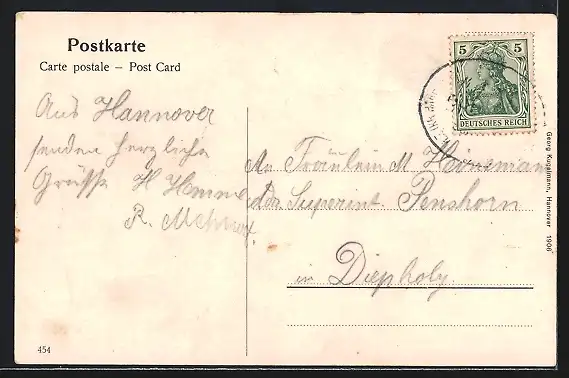 Postkarte
Carte postale – Post Card
5 5
DEUTSCHES REICH
Aus Hannover
senden herzliche
Grüsse H.
R.
An Fräulein M.
Superint. Penshorn
in Diepholz
Georg Kugelmann, Hannover 1906
454